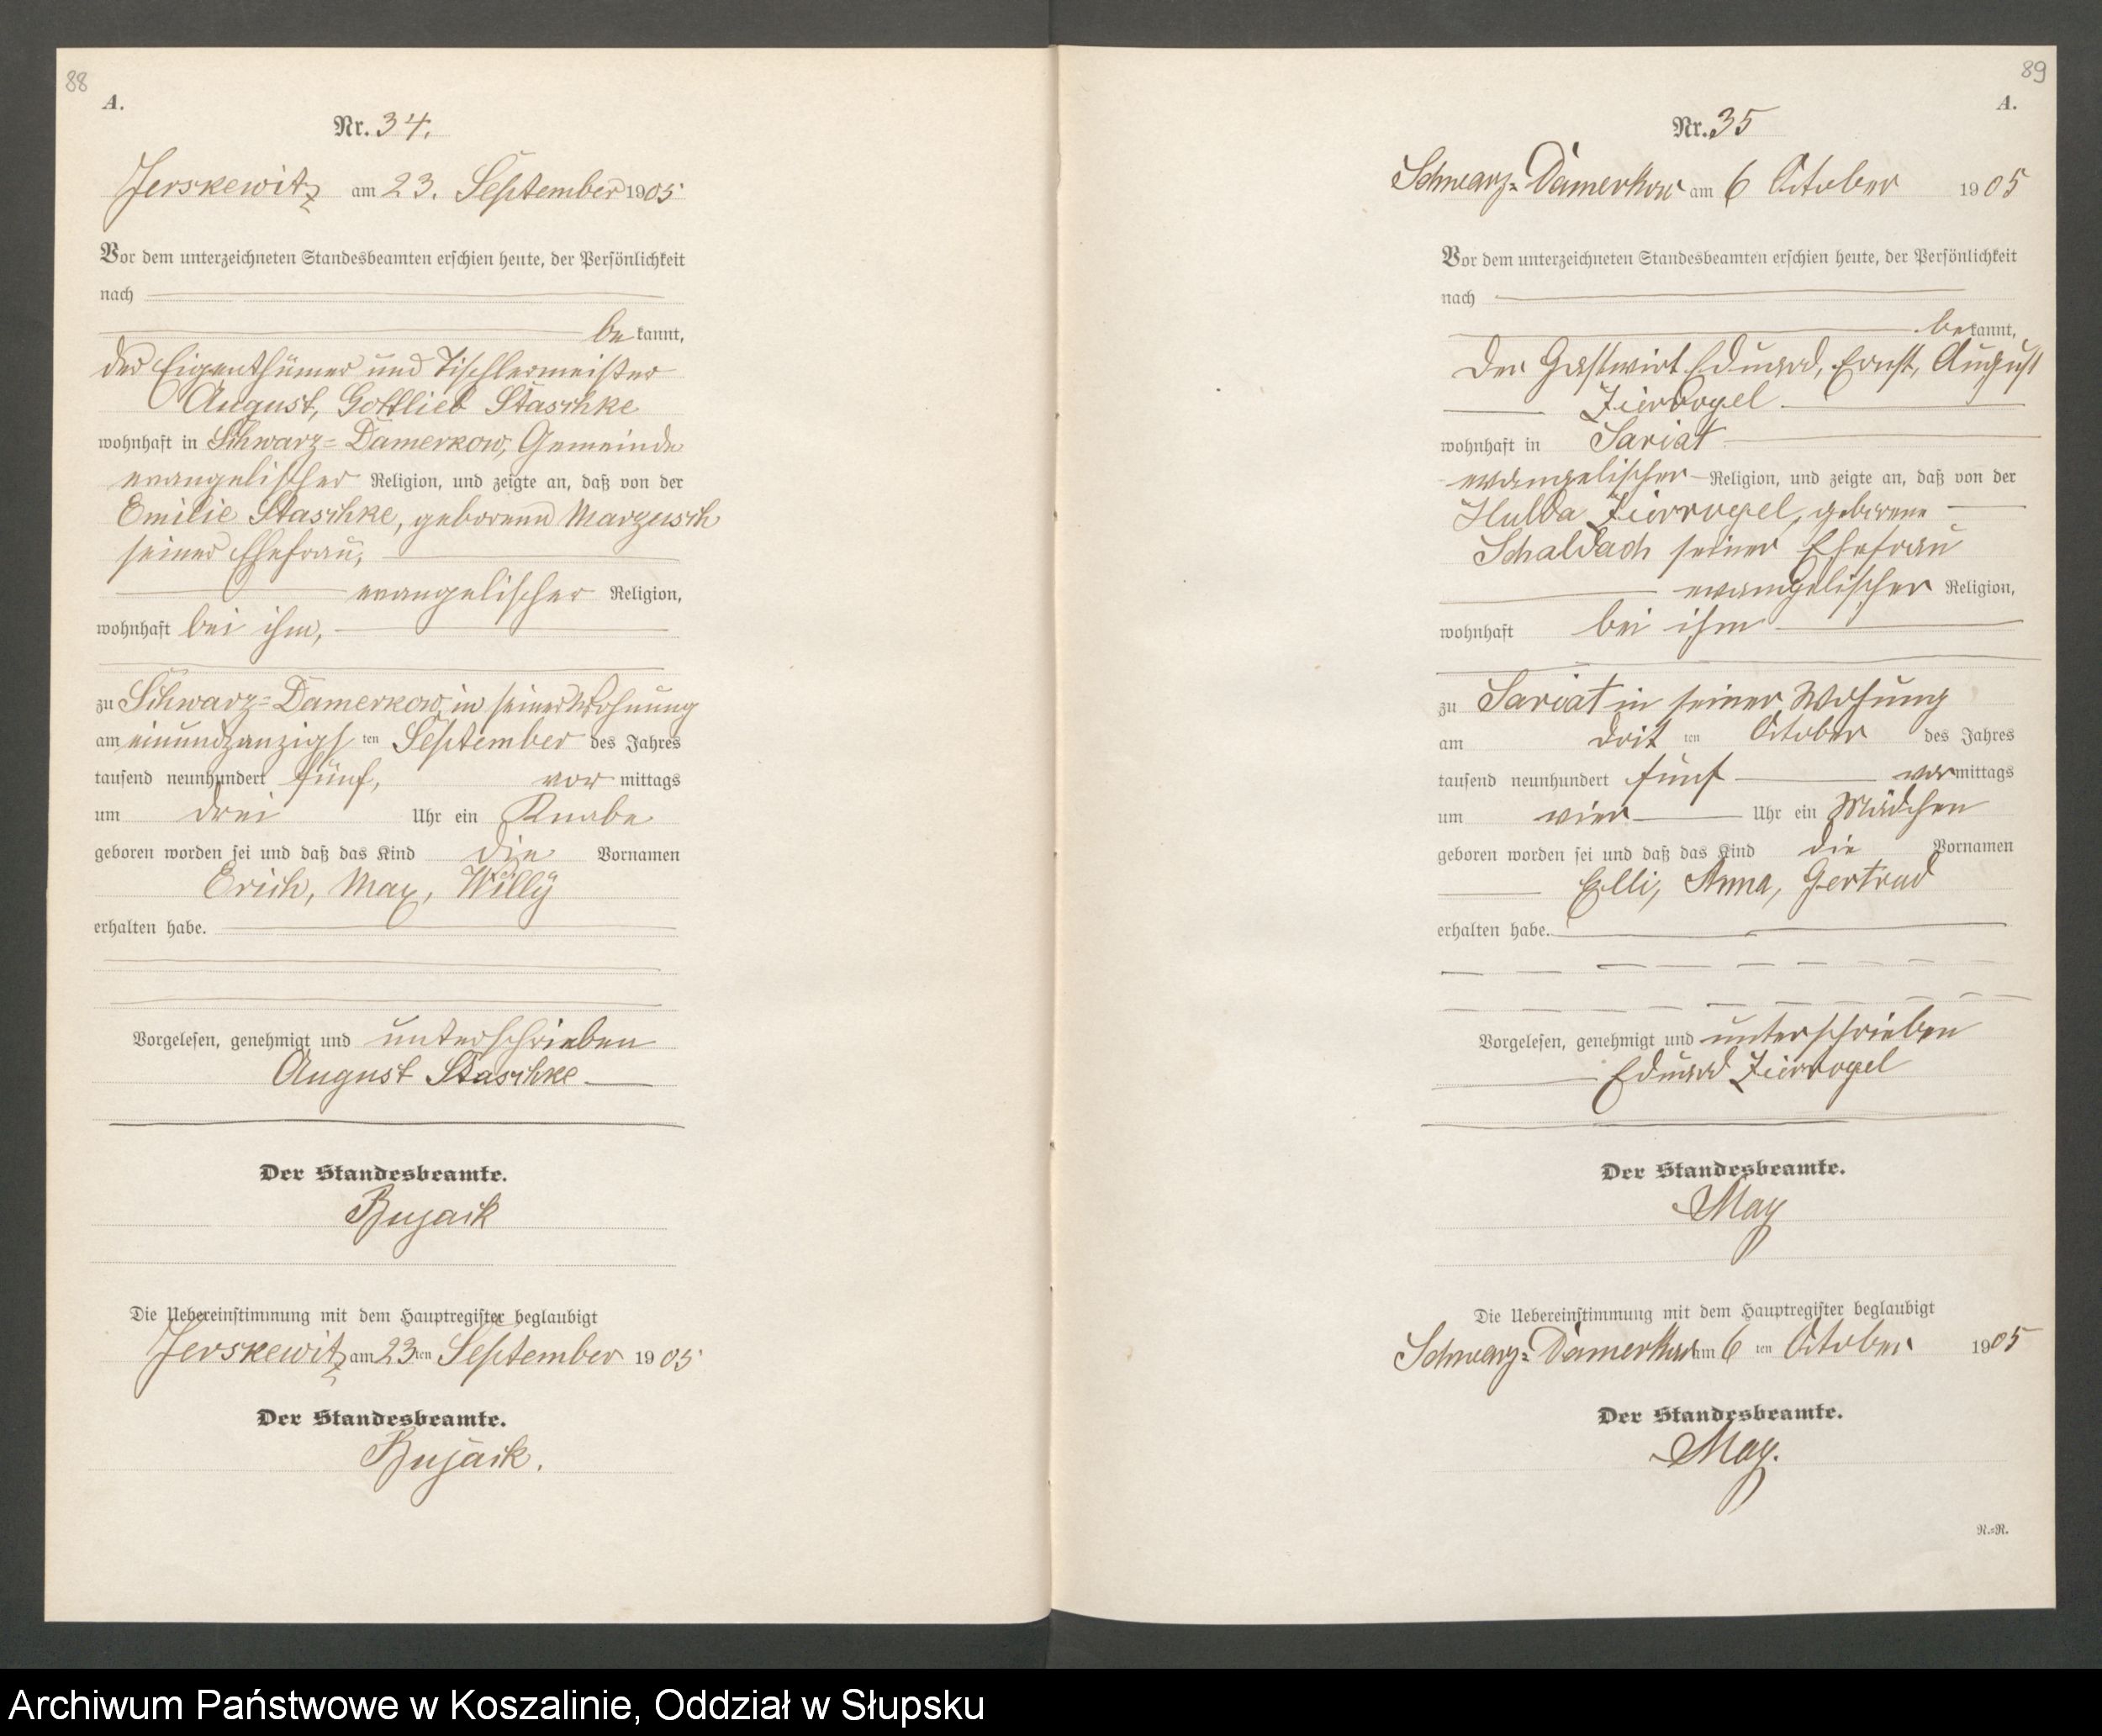 88
A.
Nr. 34.
Jerskewitz am 23. September 1905
Vor dem unterzeichneten Standesbeamten erschien heute, der Persönlichkeit
nach
be kannt,
der Eigenthümer und Tischlermeister
August, Gottlieb Staschke
wohnhaft in Schwarz=Damerkow, Gemeinde
evangelischer Religion, und zeigte an, daß von der
Emilie Staschke, geborenen Marzusch
seiner Ehefrau,
evangelischer Religion,
wohnhaft bei ihm,
zu Schwarz=Damerkow, in seiner Wohnung
am einundzanzigs ten September des Jahres
tausend neunhundert fünf, vor mittags
um drei Uhr ein Knabe
geboren worden sei und daß das Kind die Vornamen
Erich, Max, Willÿ
erhalten habe.
Vorgelesen, genehmigt und unterschrieben
August Staschke
Der Standesbeamte.
Bujack
Die Uebereinstimmung mit dem Hauptregister beglaubigt
Jerskewitz am 23 ten September 1905
Der Standesbeamte.
Bujack.
89
A.
Nr. 35
Schwarz=Damerkow am 6 October 1905
Vor dem unterzeichneten Standesbeamten erschien heute, der Persönlichkeit
nach
bekannt,
Der Gastwirt Eduard, Ernst, August
Ziervogel
wohnhaft in Sariat
evangelischer Religion, und zeigte an, daß von der
Hulda Ziervogel, geborene
Schaldach seiner Ehefrau
evangelischer Religion,
wohnhaft bei ihm
zu Sariat in seiner Wohung
am drit ten October des Jahres
tausend neunhundert fünf vormittags
um vier Uhr ein Mädchen
geboren worden sei und daß das Kind die Vornamen
Elli, Anna, Gertrud
erhalten habe.
Vorgelesen, genehmigt und unterschrieben
Eduard Ziervogel
Der Standesbeamte.
May
Die Uebereinstimmung mit dem Hauptregister beglaubigt
Schwarz=Damerkow am 6 ten October 1905
Der Standesbeamte.
May.
N.=N.
Archiwum Państwowe w Koszalinie, Oddział w Słupsku